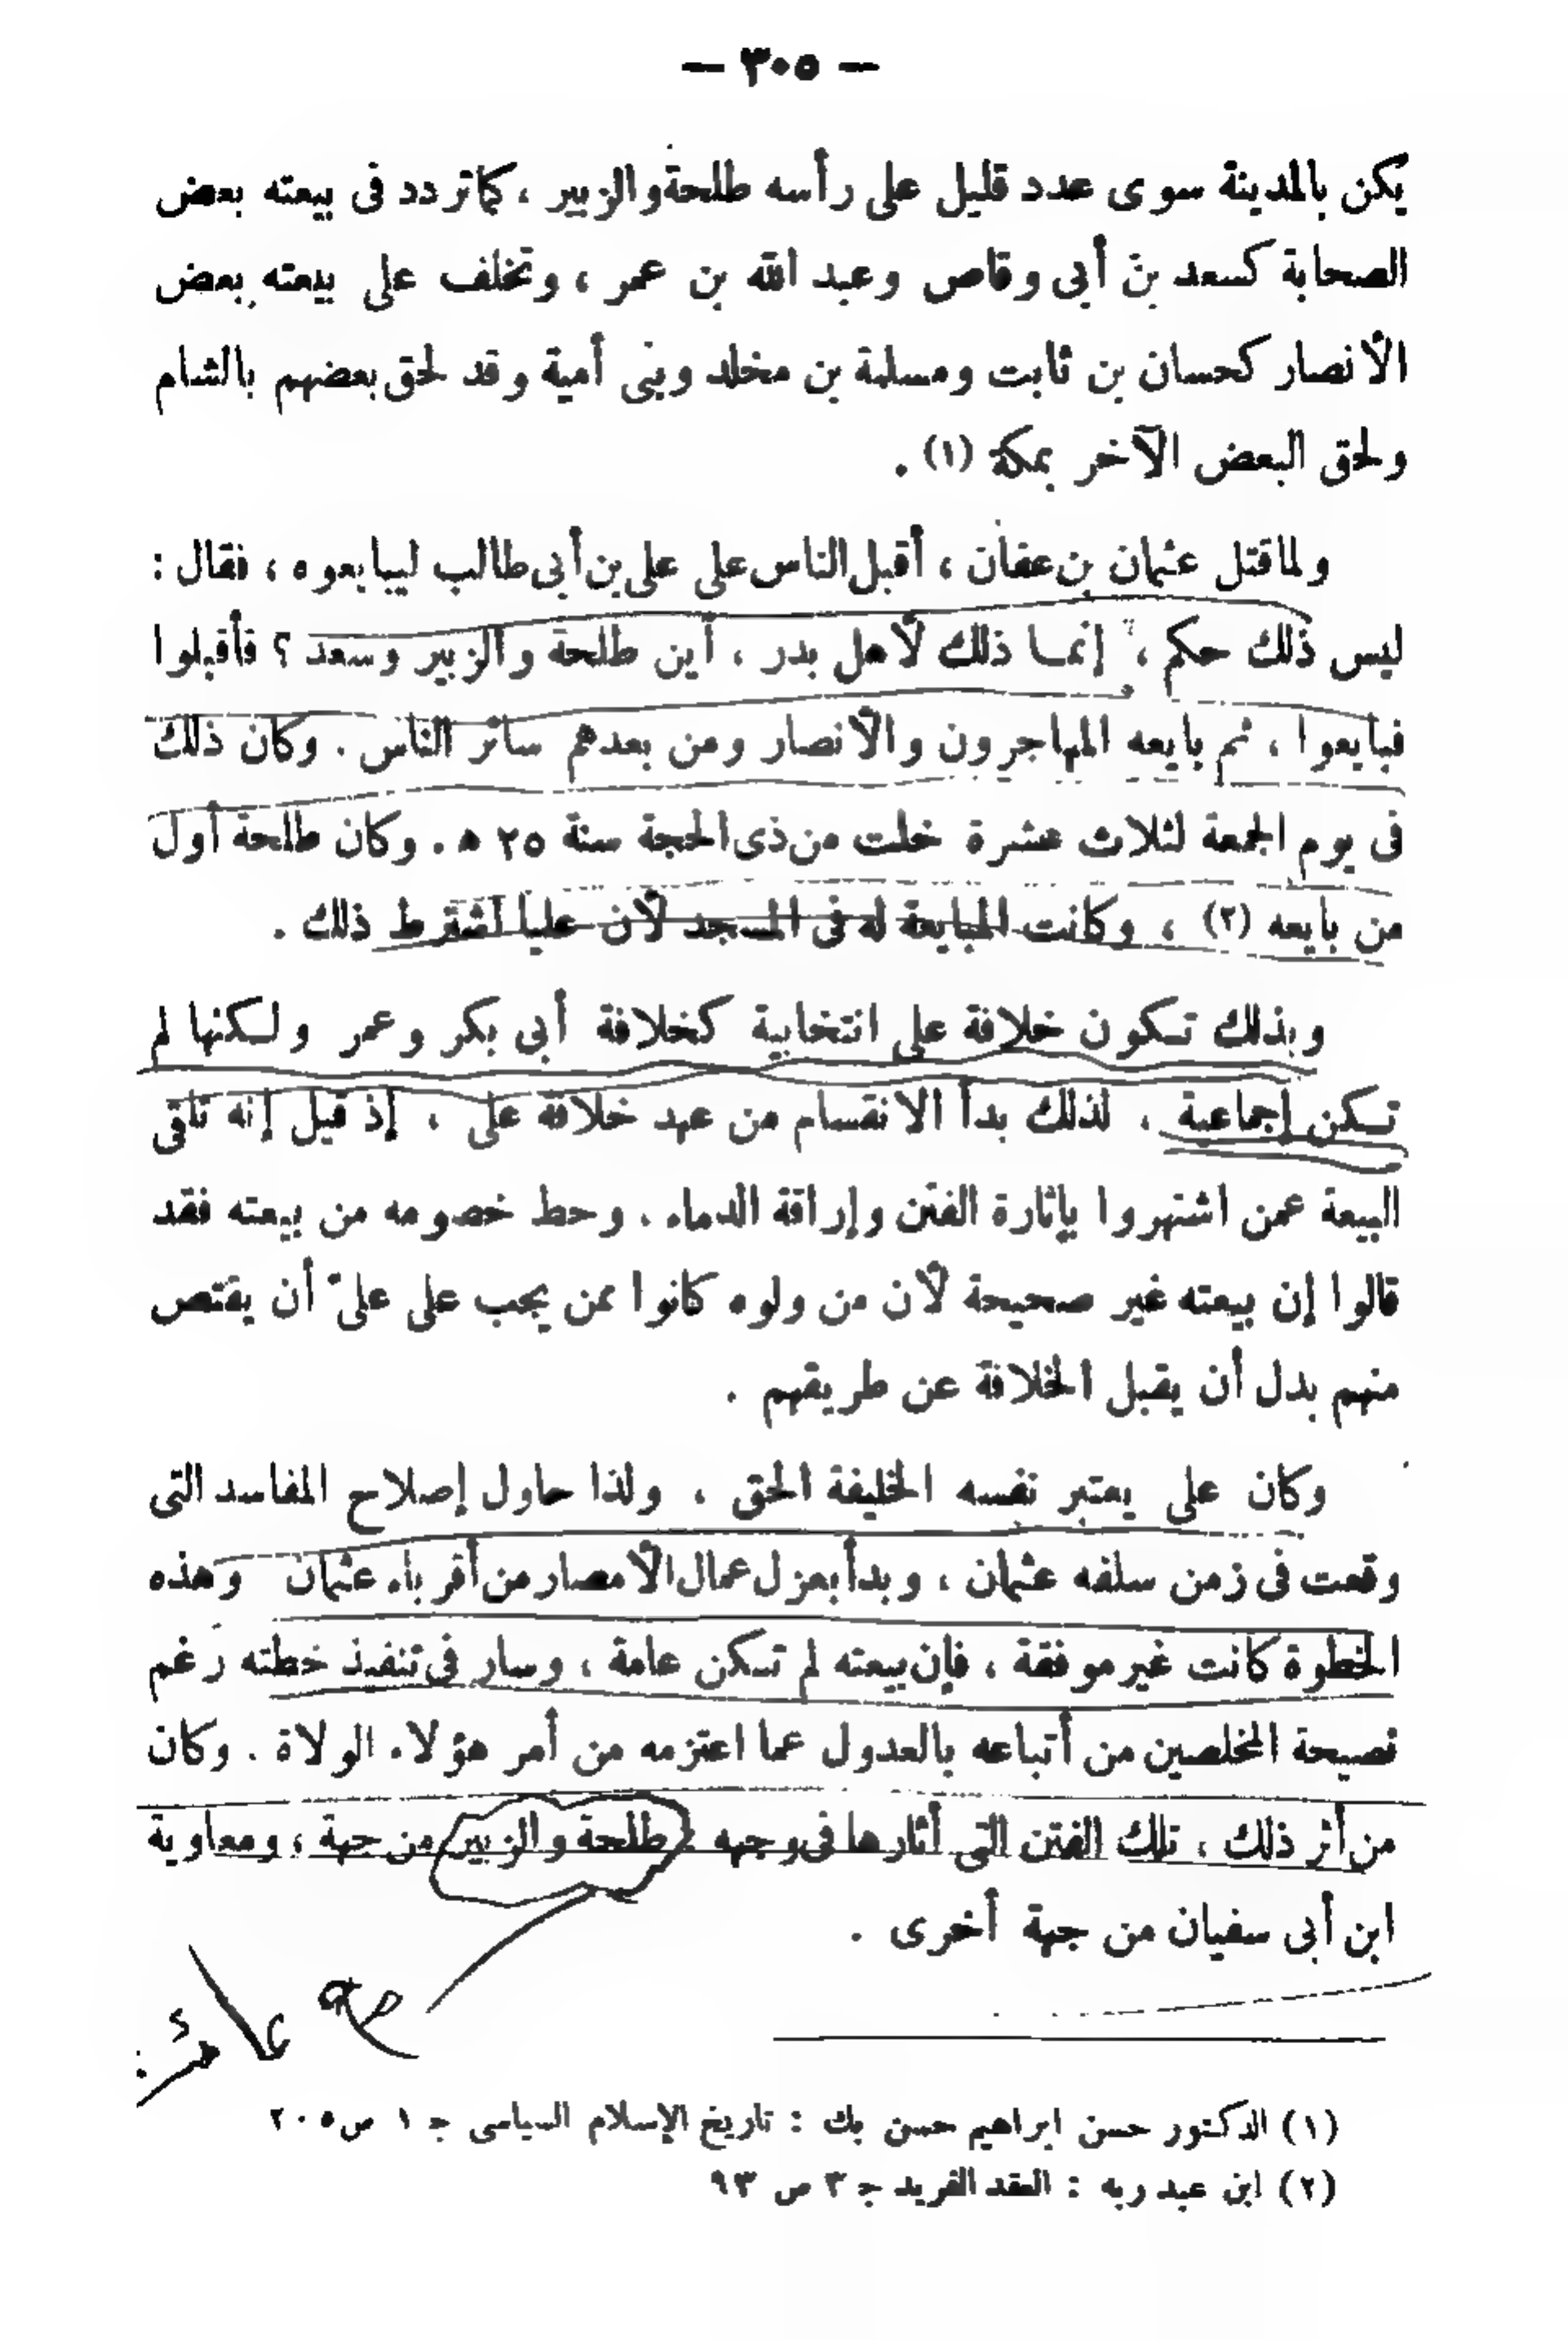 — ٣٠٥ —
يكن بالمدينة سوى عدد قليل على رأسه طلحة والزبير ، كما تردد فى بيعته بعض
الصحابة كسعد بن أبى وقاص وعبد الله بن عمر ، وتخلف على بيعته بعض
الأنصار كحسان بن ثابت ومسلمة بن مخلد وبنى أمية وقد لحق بعضهم بالشام
ولحق البعض الآخر بمكة (١) .
ولما قتل عثمان بن عفان ، أقبل الناس على على بن أبى طالب ليبايعوه ، فقال :
ليس ذلك حكم ، إنما ذلك لأهل بدر ، أين طلحة والزبير وسعد ؟ فأقبلوا
فبايعوا ، ثم بايعه المهاجرون والأنصار ومن بعدهم سائر الناس . وكان ذلك
فى يوم الجمعة لثلاث عشرة خلت من ذى الحجة سنة ٢٥ ه . وكان طلحة أول
من بايعه (٢) ، وكانت المبايعة له فى المسجد لأن عليا اشترط ذلك .
وبذلك تكون خلافة على انتخابية كخلافة أبى بكر وعمر ولكنها لم
تكن إجماعية ، لذلك بدأ الانقسام من عهد خلافة على ، إذ قيل إنه تلقى
البيعة عمن اشتهروا بإثارة الفتن وإراقة الدماء . وحط خصومه من بيعته فقد
قالوا إن بيعته غير صحيحة لأن من ولوه كانوا ممن يجب على علىّ أن يقتص
منهم بدل أن يقبل الخلافة عن طريقهم .
وكان على يعتبر نفسه الخليفة الحق ، ولذا حاول إصلاح المفاسد التى
وقعت فى زمن سلفه عثمان ، وبدأ بعزل عمال الأمصار من أقرباء عثمان وهذه
الخطوة كانت غير موفقة ، فإن بيعته لم تكن عامة ، وسار فى تنفيذ خطته رغم
نصيحة المخلصين من أتباعه بالعدول عما اعتزمه من أمر هؤلاء الولاة . وكان
من أثر ذلك ، تلك الفتن التى أثارها فى وجهه : طلحة والزبير من جهة ، ومعاوية
ابن أبى سفيان من جهة أخرى .
(١) الدكتور حسن ابراهيم حسن بك : تاريخ الإسلام السياسى ج ١ ص ٢٠٥
(٢) ابن عبد ربه : العقد الفريد ج ٣ ص ٩٣